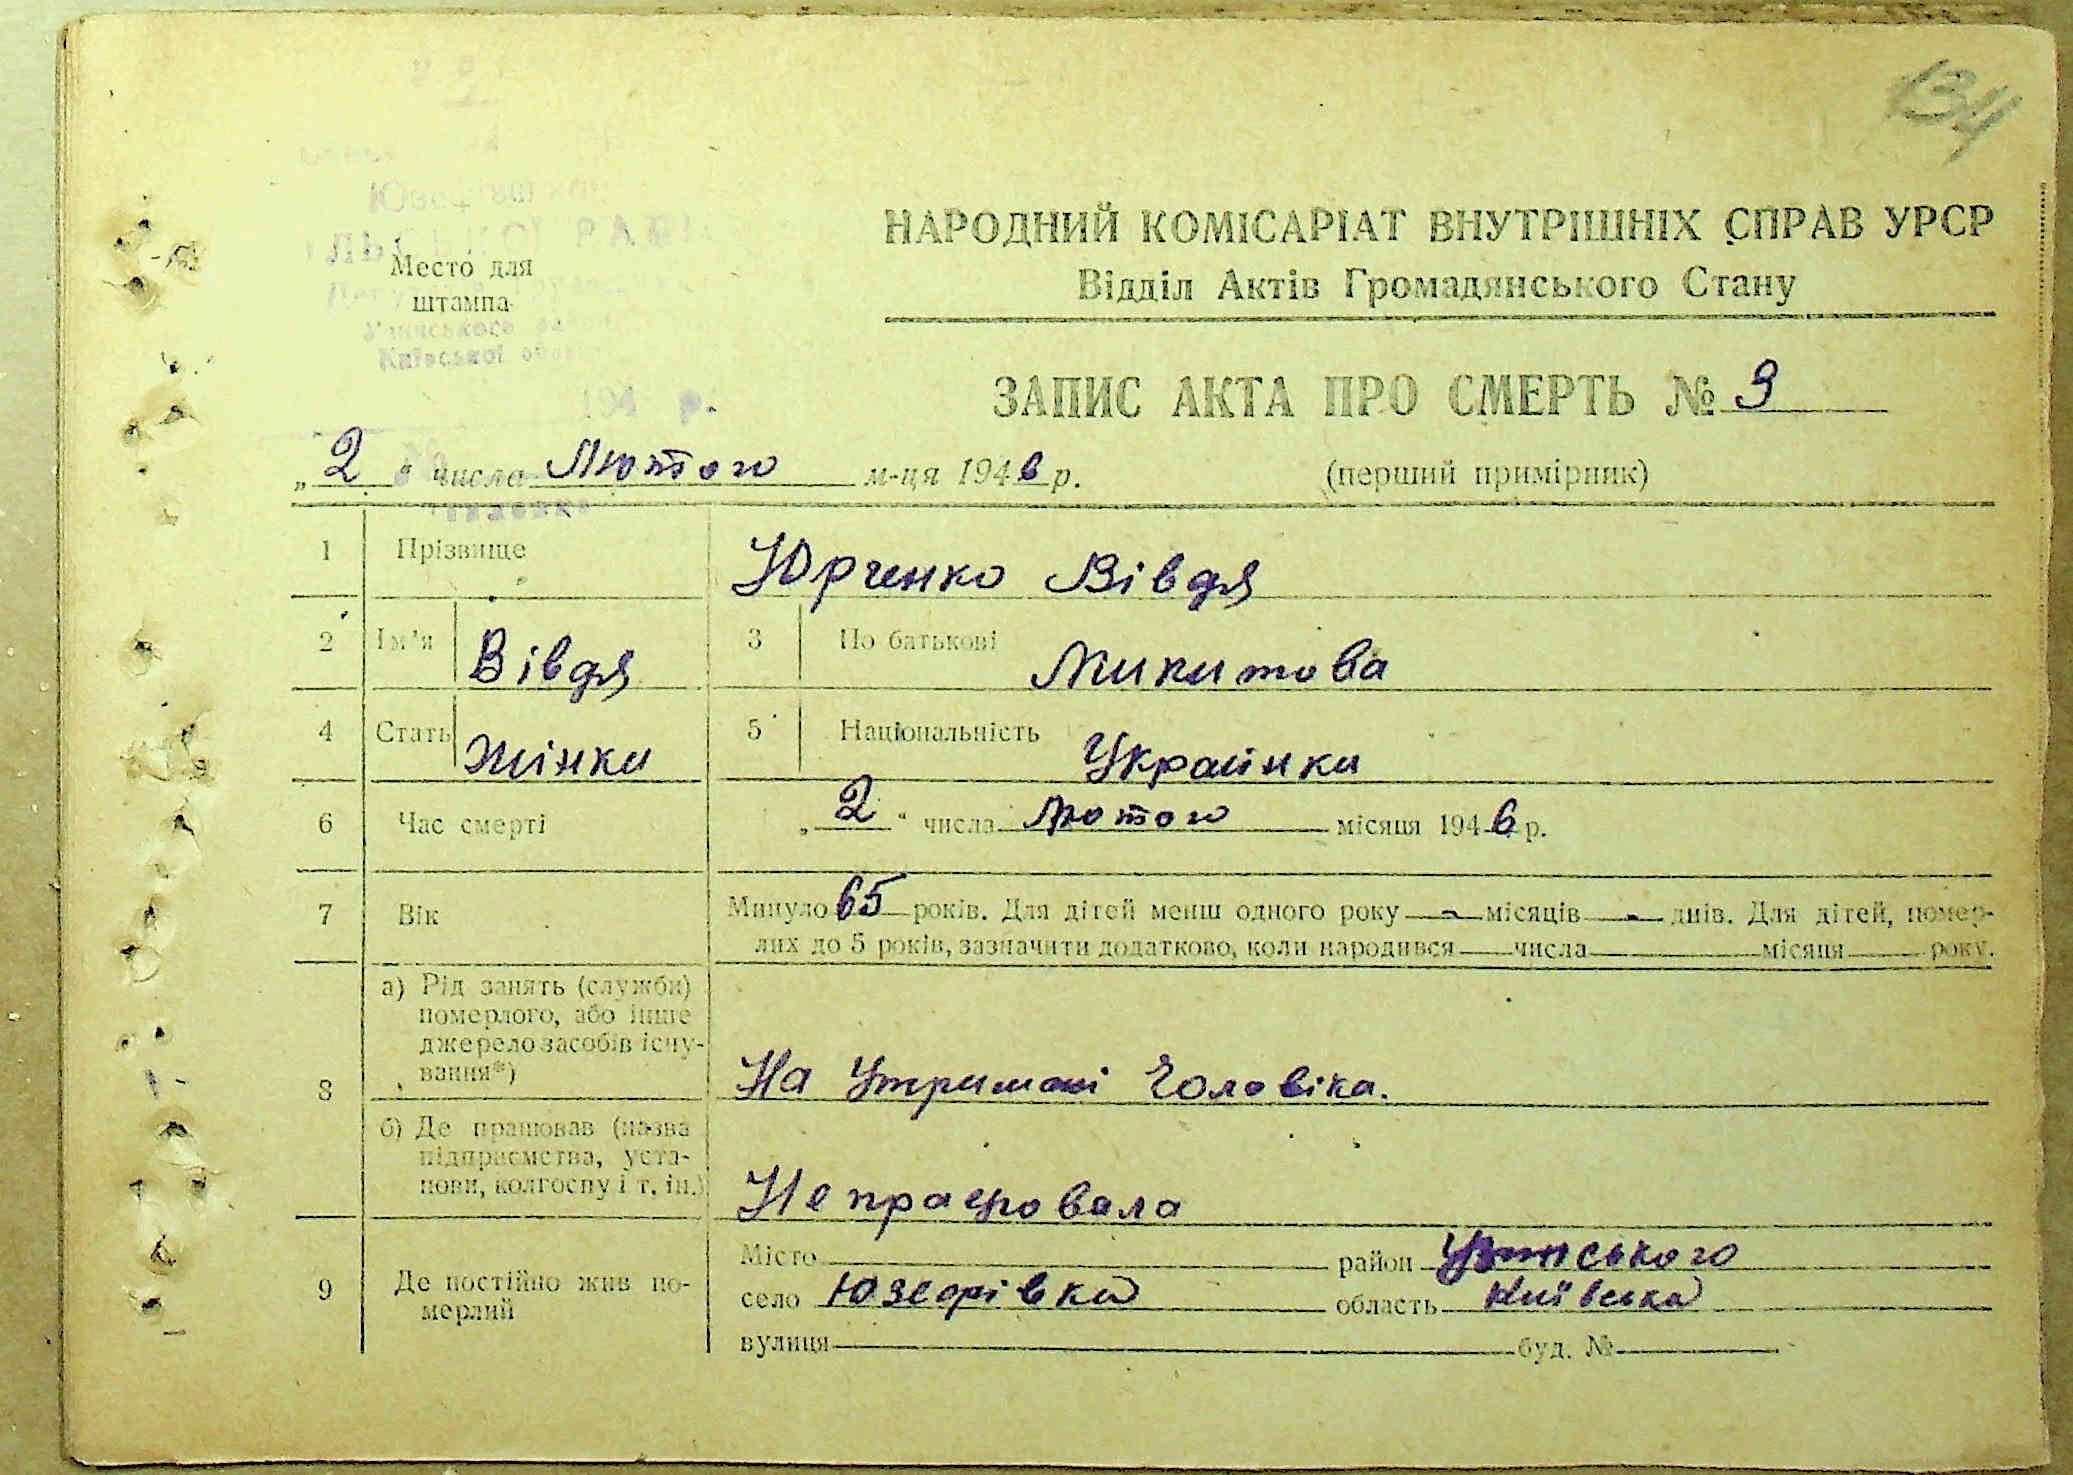 134
НАРОДНИЙ КОМІСАРІАТ ВНУТРІШНІХ СПРАВ УРСР
Відділ Актів Громадянського Стану
Место для
штампа
Київської
194 р.
ЗАПИС АКТА ПРО СМЕРТЬ № 9
„2“ числа Лютого м-ця 1946 р.
(перший примірник)
1 Прізвище Юрченко Вівдя
2 Ім'я Вівдя 3 По батькові Микитова
4 Стать Жінки 5 Національність Українки
6 Час смерті „2“ числа Лютого місяця 1946 р.
7 Вік Минуло 65 років. Для дітей менш одного року - місяців - днів. Для дітей, помер-
лих до 5 років, зазначити додатково, коли народився числа місяця року.
8 а) Рід занять (служби)
померлого, або інше
джерело засобів існу-
вання*) На Утримані Чоловіка.
б) Де працював (назва
підприємства, уста-
нови, колгоспу і т. ін.) Не працювала
9 Де постійно жив по-
мерлий
Місто район Узинського
село Юзефівка область Київська
вулиця буд. №